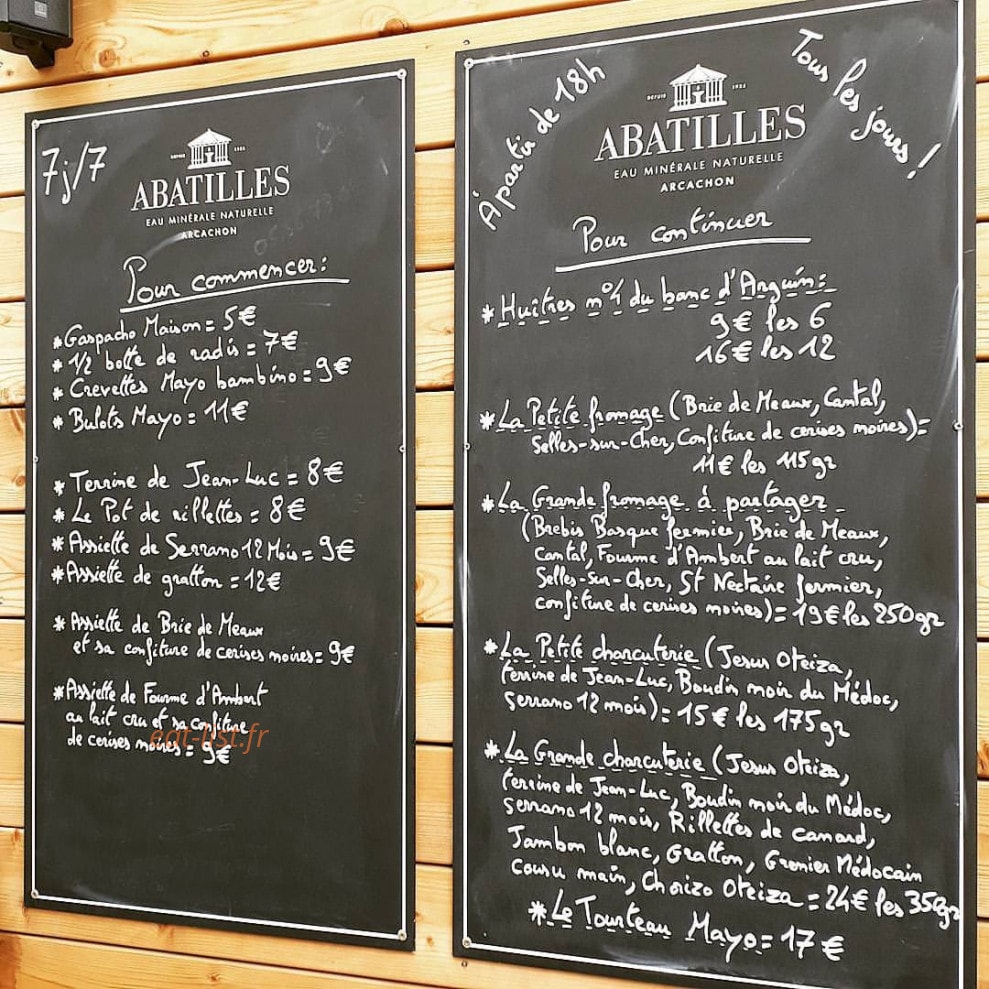 7j/7
DEPUIS 1925
ABATILLES
EAU MINÉRALE NATURELLE
ARCACHON
Pour commencer:
* Gaspacho Maison = 5€
* 1/2 botte de radis = 7€
* Crevettes Mayo bambino = 9€
* Bulots Mayo = 11€
* Terrine de Jean-Luc = 8€
* Le Pot de rillettes = 8€
* Assiette de Serrano 12 Mois = 9€
* Assiette de gratton = 12€
* Assiette de Brie de Meaux
et sa confiture de cerises noires = 9€
* Assiette de Fourme d'Ambert
au lait cru et sa confiture
de cerises noires = 9€
eat-list.fr
À partir de 18h
Tous les jours !
DEPUIS 1925
ABATILLES
EAU MINÉRALE NATURELLE
ARCACHON
Pour continuer
* Huîtres n°4 du banc d'Arguin:
9€ les 6
16€ les 12
* La Petite fromage (Brie de Meaux, Cantal,
Selles-sur-Cher, Confiture de cerises noires) =
11€ les 115gr
* La Grande fromage à partager
(Brebis Basque fermier, Brie de Meaux,
Cantal, Fourme d'Ambert au lait cru,
Selles-sur-Cher, St Nectaire fermier,
confiture de cerises noires) = 19€ les 250gr
* La Petite charcuterie (Jesus Oteiza,
terrine de Jean-Luc, Boudin noir du Médoc,
serrano 12 mois) = 15€ les 175gr
* La Grande charcuterie (Jesus Oteiza,
terrine de Jean-Luc, Boudin noir du Médoc,
serrano 12 mois, Rillettes de canard,
Jambon blanc, Gratton, Grenier Médocain
cousu main, Chorizo Oteiza = 24€ les 350gr
* Le Tourteau Mayo = 17€